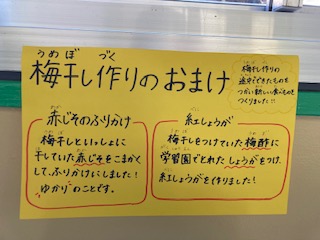 梅干し作りのおまけ
梅干し作りの
途中でできたものを
つかい新しい食べものを
つくりました!!
赤じそのふりかけ
梅干しといっしょに
干していた赤じそをこまかく
して、ふりかけにしました!
ゆかりのことです。
紅しょうが
梅干しをつけていた梅酢に
学習園でとれたしょうがをつけ、
紅しょうがを作りました!